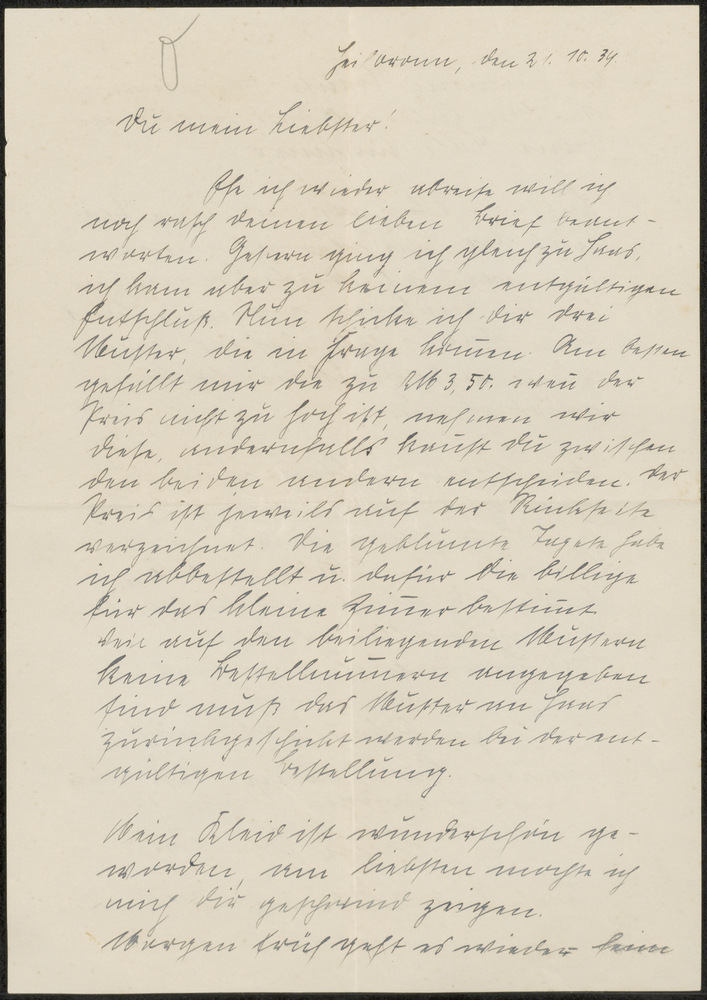 Heilbronn, den 21. 10. 34
Du mein Liebster!
Ehe ich wieder abreise will ich
noch rasch deinen lieben Brief beant-
worten. Gestern ging ich gleich zu Haas,
ich kam aber zu keinem entgültigen
Entschluß. Nun schicke ich dir drei
Muster, die in Frage kommen. Am besten
gefällt mir die zu RM 3,50. wenn der
Preis nicht zu hoch ist, nehmen wir
diese, andernfalls kannst Du zwischen
den beiden andern entscheiden. Der
Preis ist jeweils auf der Rückseite
verzeichnet. Die geblümte Tapete habe
ich abbestellt u. dafür die billige
für das kleine Zimmer bestimmt
weil auf den beiliegenden Mustern
keine Bestellnummern angegeben
sind muß das Muster an Haas
zurückgeschickt werden bei der ent-
gültigen Bestellung.
Mein Kleid ist wunderschön ge-
worden, am liebsten möchte ich
mich dir geschwind zeigen.
Morgen früh geht es wieder heim